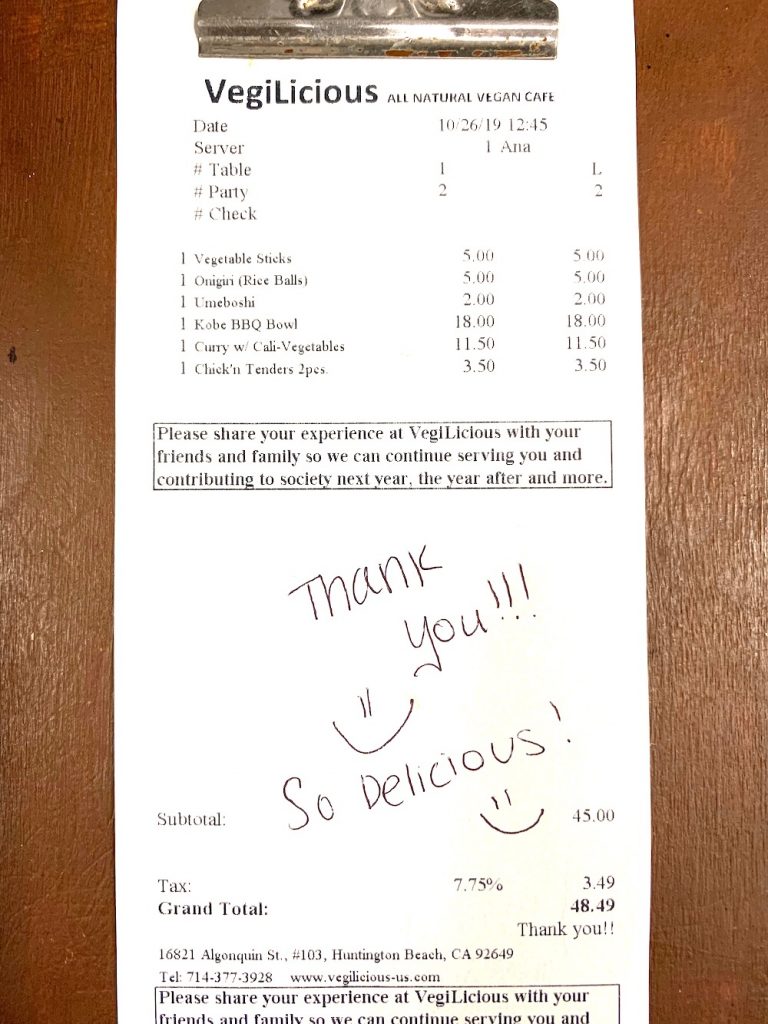 VegiLicious ALL NATURAL VEGAN CAFE
Date 10/26/19 12:45
Server 1 Ana
# Table 1 L
# Party 2 2
# Check
1 Vegetable Sticks 5.00 5.00
1 Onigiri (Rice Balls) 5.00 5.00
1 Umeboshi 2.00 2.00
1 Kobe BBQ Bowl 18.00 18.00
1 Curry w/ Cali-Vegetables 11.50 11.50
1 Chick'n Tenders 2pcs. 3.50 3.50
Please share your experience at VegiLicious with your
friends and family so we can continue serving you and
contributing to society next year, the year after and more.
Thank
you!!!
So Delicious!
Subtotal: 45.00
Tax: 7.75% 3.49
Grand Total: 48.49
Thank you!!
16821 Algonquin St., #103, Huntington Beach, CA 92649
Tel: 714-377-3928 www.vegilicious-us.com
Please share your experience at VegiLicious with your
friends and family so we can continue serving you and